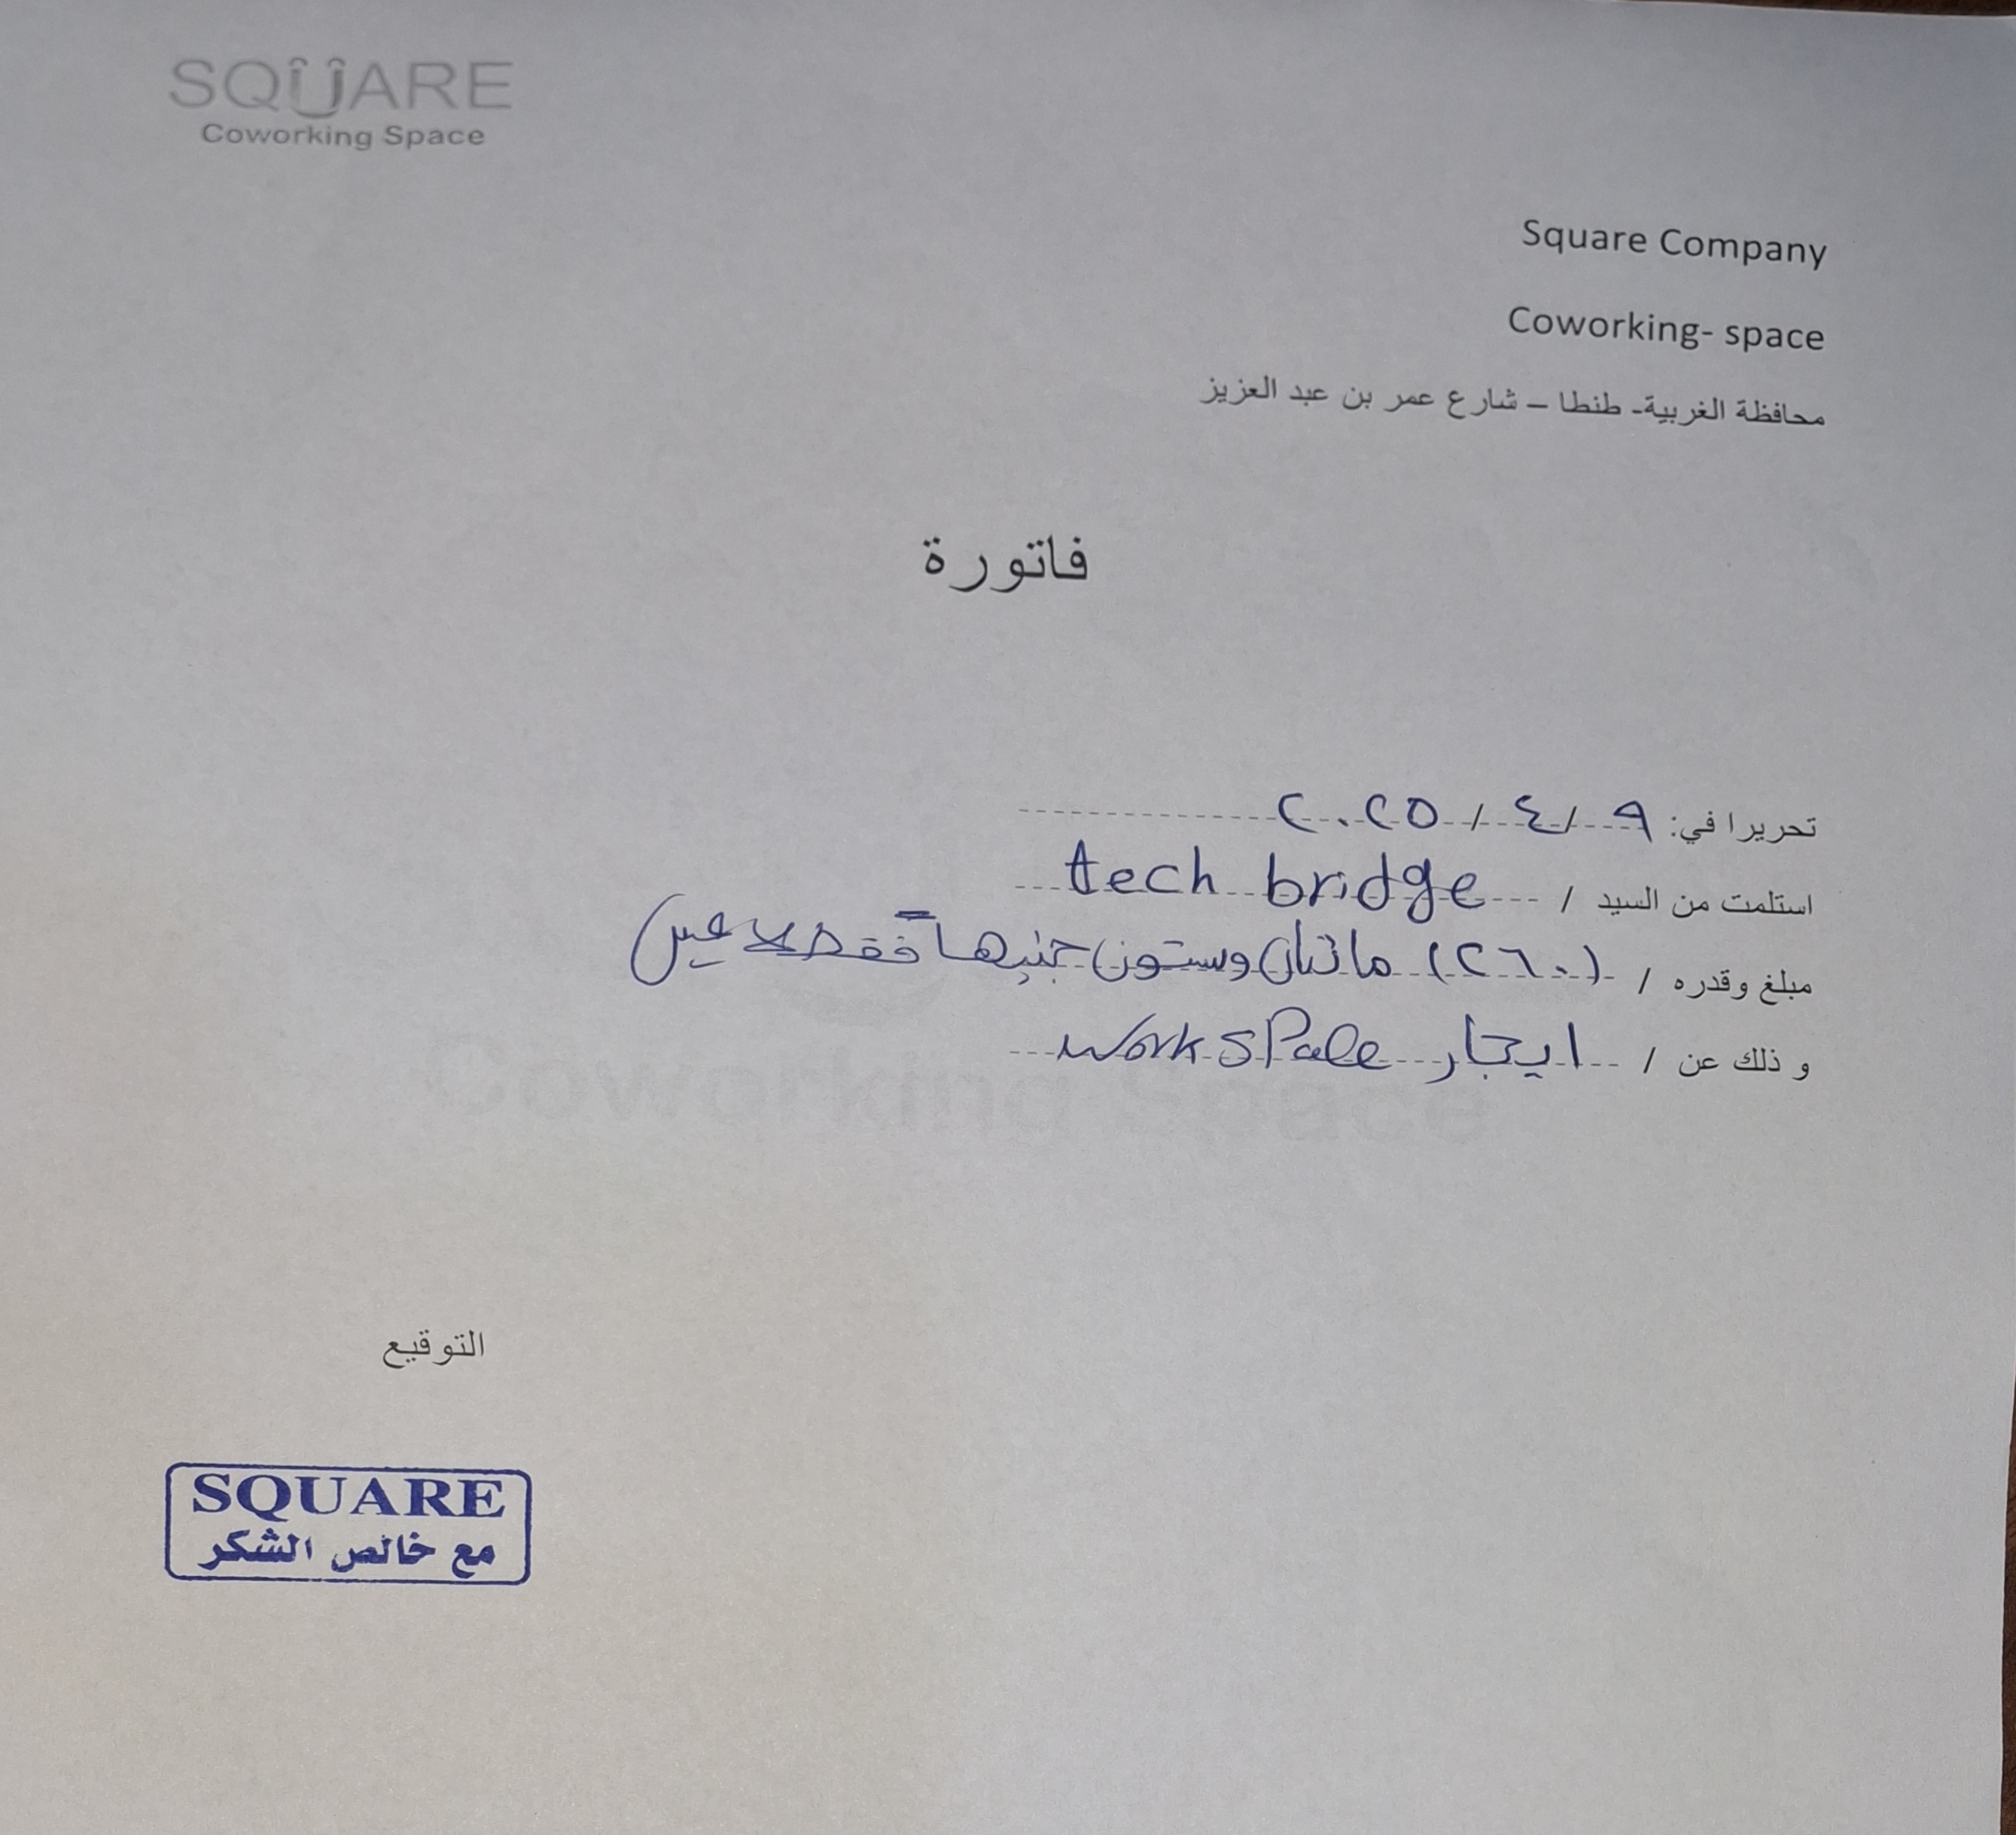 SQUARE
Coworking Space
Square Company
Coworking- space
محافظة الغربية- طنطا – شارع عمر بن عبد العزيز
فاتورة
تحريرا في: ٩ / ٤ / ٢٠٢٥
استلمت من السيد / tech bridge
مبلغ وقدره / (٢٦٠) مائتان وستون جنيهاً فقط لا غير
و ذلك عن / ايجار work space
Coworking Space
التوقيع
SQUARE
مع خالص الشكر